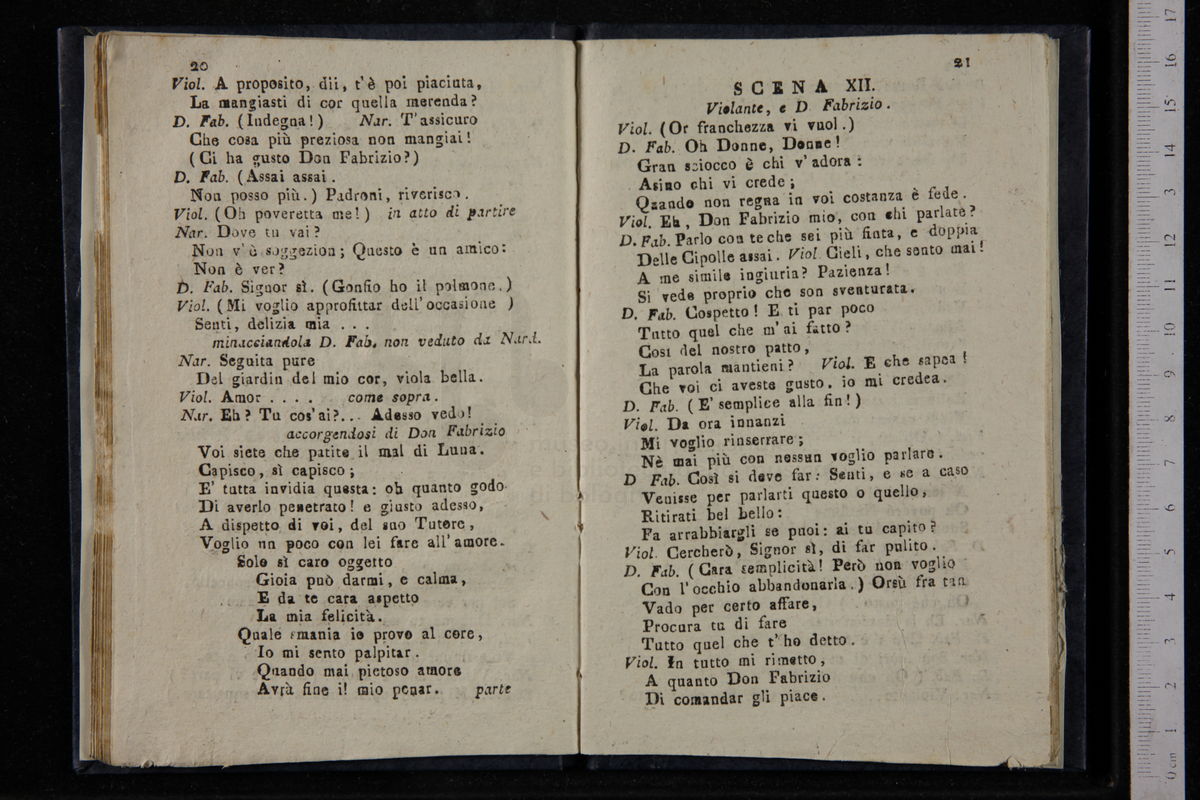 20
Viol. A proposito, dii, t'è poi piaciuta,
La mangiasti di cor quella merenda?
D. Fab. (Indegna!) Nar. T'assicuro
Che cosa più preziosa non mangiai!
(Ci ha gusto Don Fabrizio?)
D. Fab. (Assai assai.
Non posso più.) Padroni, riverisco.
Viol. (Oh poveretta me!) in atto di partire
Nar. Dove tu vai?
Non v'è soggezion; Questo è un amico:
Non è ver?
D. Fab. Signor sì. (Gonfio ho il polmone.)
Viol. (Mi voglio approfittar dell'occasione )
Senti, delizia mia . . .
minacciandola D. Fab. non veduto da Nard.
Nar. Seguita pure
Del giardin del mio cor, viola bella.
Viol. Amor . . . . come sopra.
Nar. Eh? Tu cos'ai?... Adesso vedo!
accorgendosi di Don Fabrizio
Voi siete che patite il mal di Luna.
Capisco, sì capisco;
E' tutta invidia questa: oh quanto godo
Di averlo penetrato! e giusto adesso,
A dispetto di voi, del suo Tutore,
Voglio un poco con lei fare all'amore.
Solo sì caro oggetto
Gioia può darmi, e calma,
E da te cara aspetto
La mia felicità.
Quale smania io provo al core,
Io mi sento palpitar.
Quando mai pietoso amore
Avrà fine il mio penar. parte
21
SCENA XII.
Violante, e D. Fabrizio.
Viol. (Or franchezza vi vuol.)
D. Fab. Oh Donne, Donne!
Gran sciocco è chi v'adora:
Asino chi vi crede;
Quando non regna in voi costanza è fede.
Viol. Eh, Don Fabrizio mio, con chi parlate?
D. Fab. Parlo con te che sei più finta, e doppia
Delle Cipolle assai. Viol. Cieli, che sento mai!
A me simile ingiuria? Pazienza!
Si vede proprio che son sventurata.
D. Fab. Cospetto! E ti par poco
Tutto quel che m'ai fatto?
Così del nostro patto,
La parola mantieni? Viol. E che sapea!
Che voi ci aveste gusto. io mi credea.
D. Fab. (E' semplice alla fin!)
Viol. Da ora innanzi
Mi voglio rinserrare;
Nè mai più con nessun voglio parlare.
D Fab. Così si deve far: Senti, e se a caso
Venisse per parlarti questo o quello,
Ritirati bel bello:
Fa arrabbiargli se puoi: ai tu capito?
Viol. Cercherò, Signor sì, di far pulito.
D. Fab. (Cara semplicità! Però non voglio
Con l'occhio abbandonarla.) Orsù fra tan
Vado per certo affare,
Procura tu di fare
Tutto quel che t'ho detto.
Viol. In tutto mi rimetto,
A quanto Don Fabrizio
Di comandar gli piace.